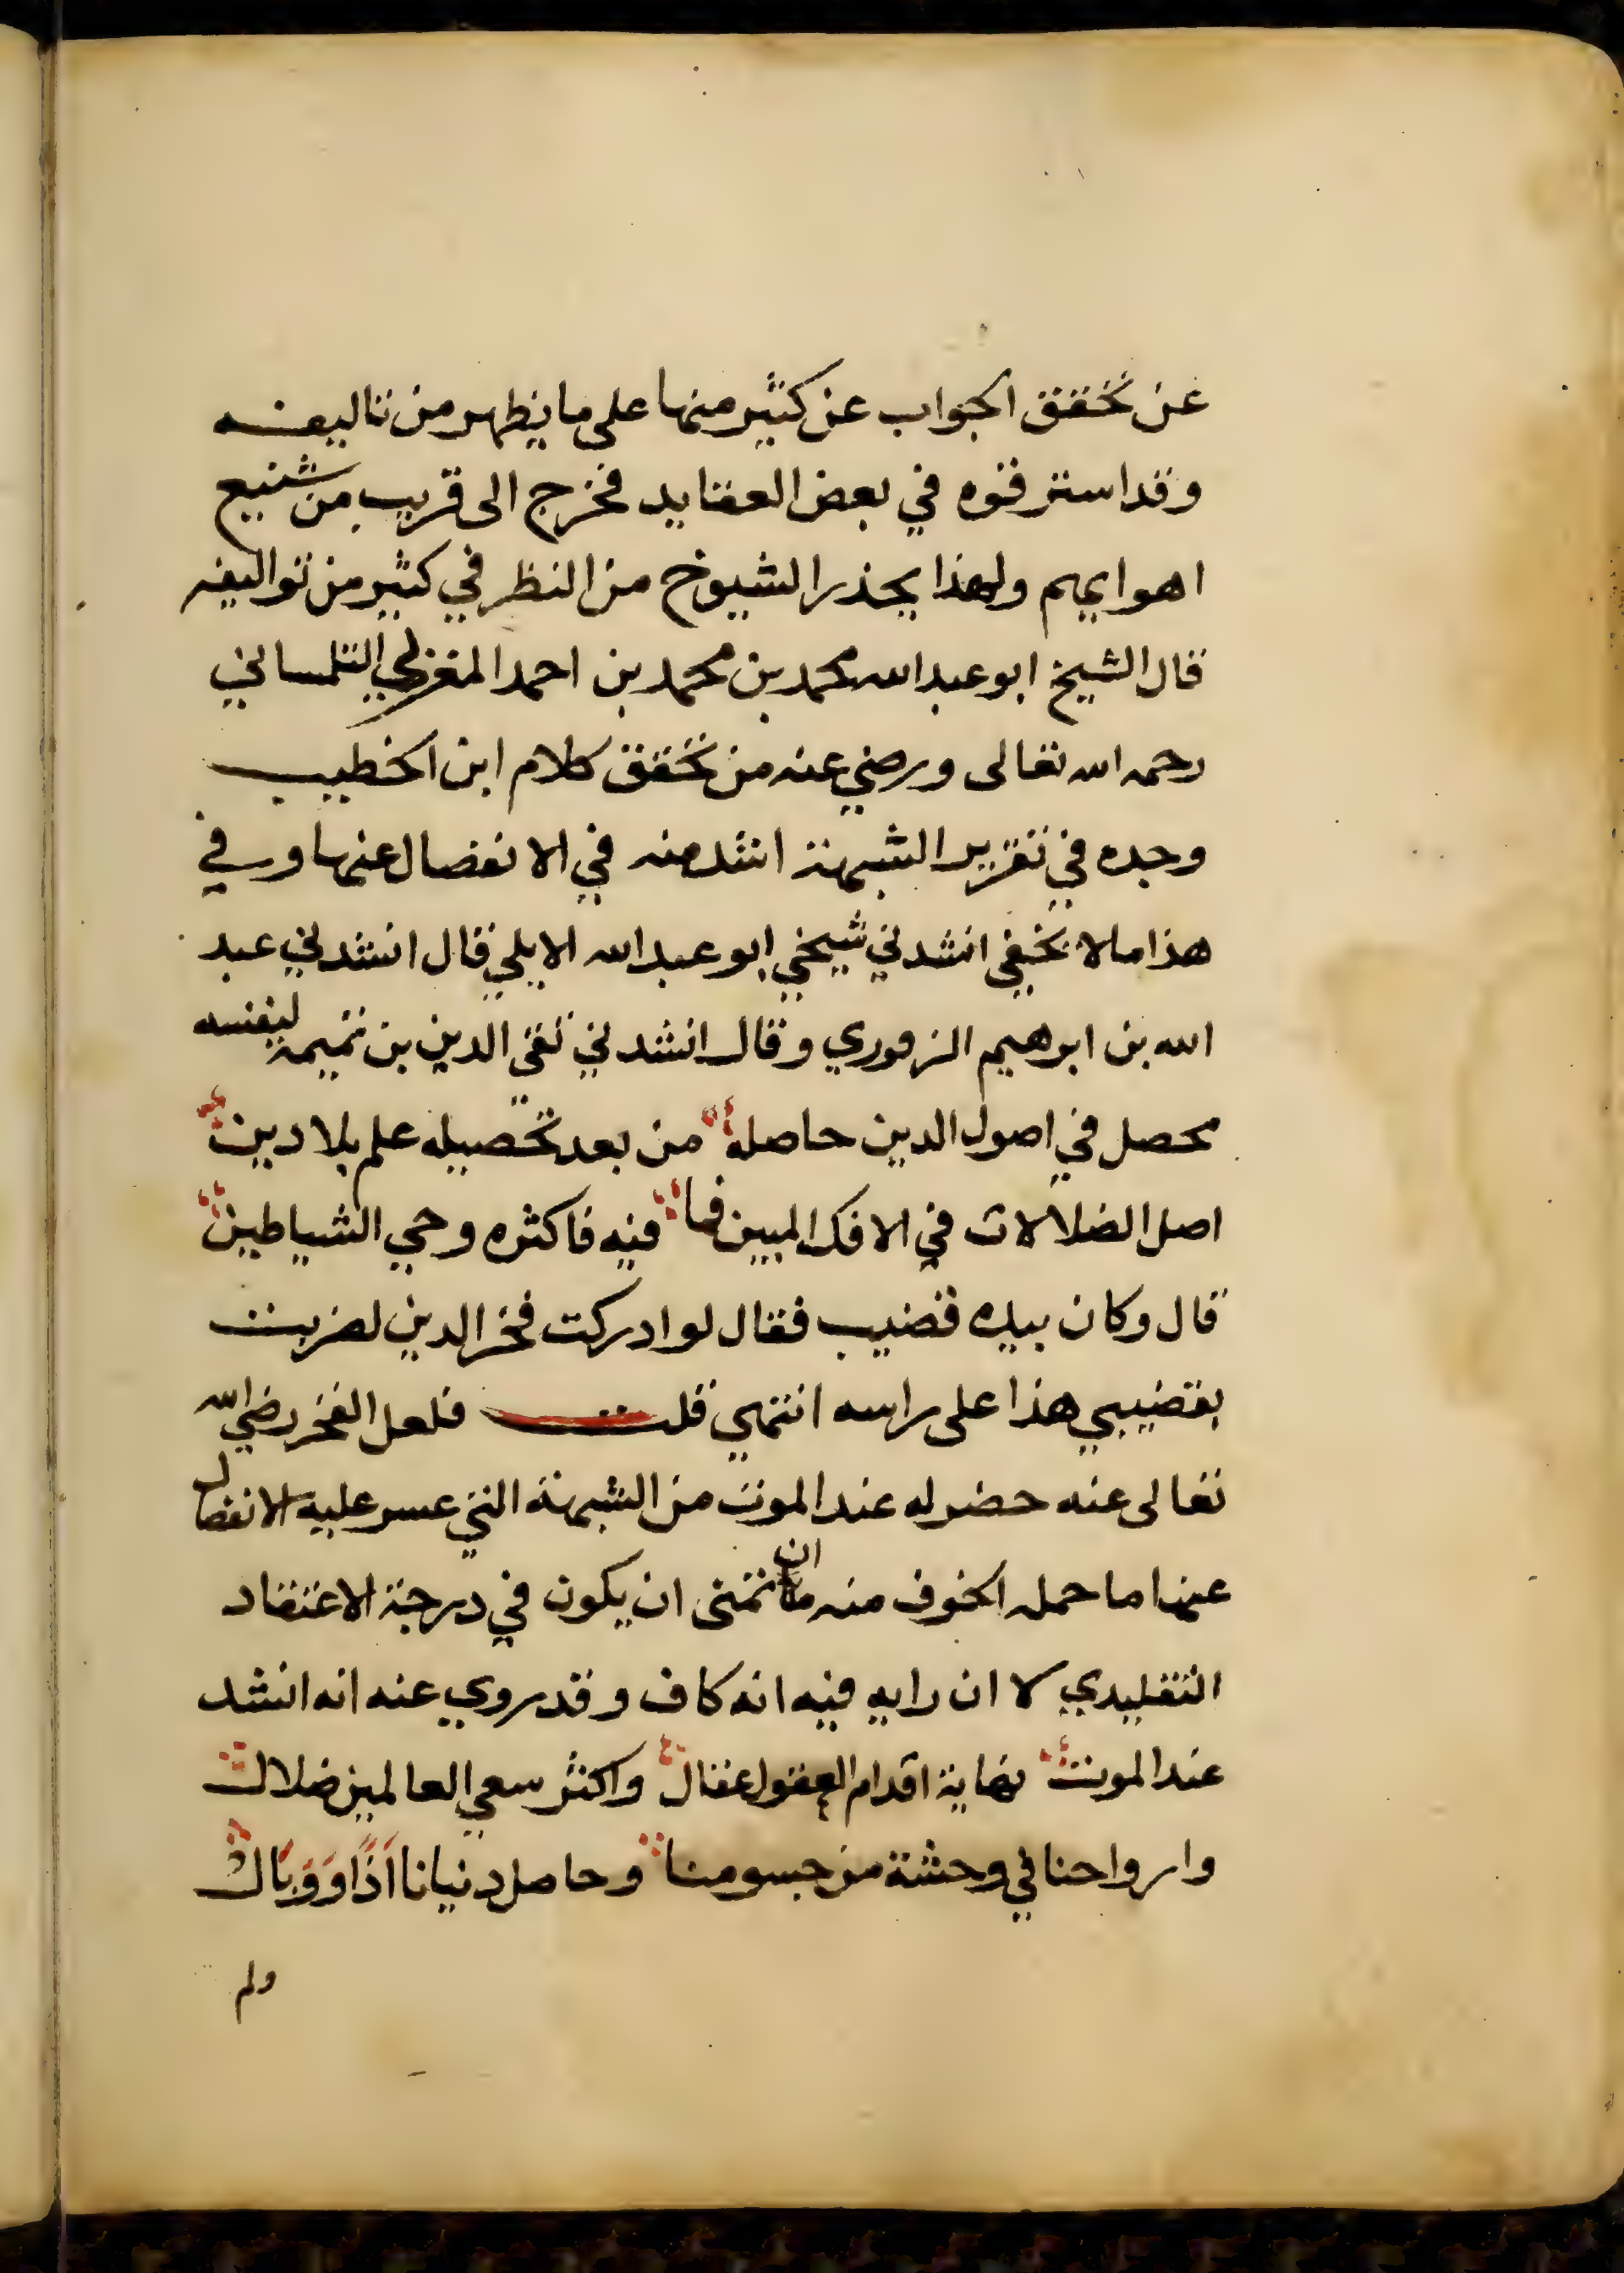 عن تحقق الجواب عن كثير منها على ما يظهر من تاليفه
وقد استرقوه في بعض العقايد فخرج الى قريب من شنيع
اهوايهم ولهذا يحذر الشيوخ من النظر في كثير من تواليفه
قال الشيخ ابو عبد الله محمد بن محمد بن احمد المغربي التلمساني
رحمه الله تعالى ورضي عنه من تحقق كلام ابن الخطيب
وجده في تقرير الشبهة اشد منه في الانفصال عنها وفي
هذا ما لا يخفى انشدني شيخي ابو عبد الله الابلي قال انشدني عبد
الله بن ابرهيم الزموري وقال انشدني تقي الدين بن تيميه لنفسه
محصل في اصول الدين حاصله من بعد تحصيله علم بلا دين
اصل الضلالات في الافك المبين فما فيه فاكثره وحي الشياطين
قال وكان بيده قضيب فقال لو ادركت فخر الدين لضربت
بقضيبي هذا على راسه انتهي قلت فلعل الفخر رضي الله
تعالى عنه حضر له عند الموت من الشبهة التي عسر عليه الانفصال
عنها ما حمله الخوف منه ان تمنى ان يكون في درجة الاعتقاد
التقليدي لا ان رايه فيه انه كاف وقد روي عنه انه انشد
عند الموت نهاية اقدام العقول عقال واكثر سعي العالمين ضلال
وارواحنا في وحشة من جسومنا وحاصل دنيانا اَذًا وَوَبَال
ولم